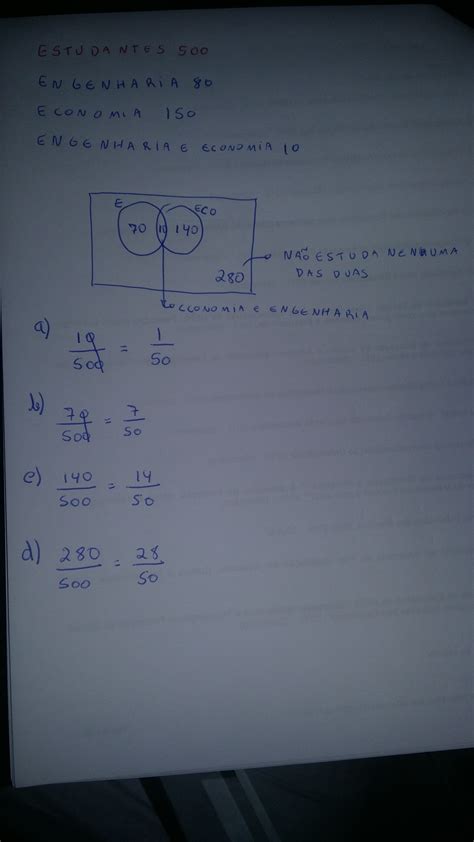 ESTUDANTES 500
ENGENHARIA 80
ECONOMIA 150
ENGENHARIA E ECONOMIA 10
E ECO
70 10 140
280
NÃO ESTUDA NENHUMA
DAS DUAS
ECONOMIA E ENGENHARIA
a) 10/500 = 1/50
b) 70/500 = 7/50
c) 140/500 = 14/50
d) 280/500 = 28/50